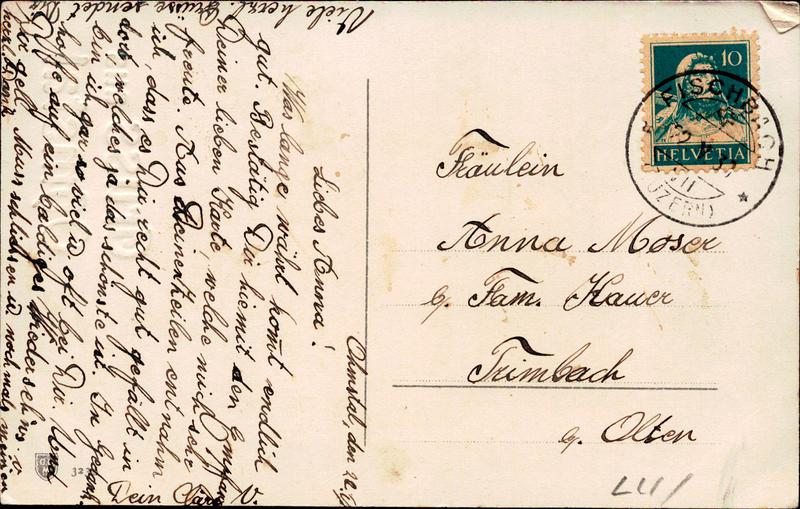 Ohmstal, den
Liebes Anna!
Was lange währt kommt endlich
gut. Bestätig Dir hiemit den Empfang
Deiner lieben Karte, welche mich sehr
freute. Aus Deinen Zeilen entnahm
ich, dass es Dir recht gut gefällt in
dort, welches ja das schönste ist. In Gedank
bin ich gar so viel u oft bei Dir. Und
hoffe auf ein baldiges Wiedersehn
gell. Muss schliessen u. noch mals meinen
herzl. Dank
Viele herzl. Grüsse sendet Dir
Dein
V.
32
10
HELVETIA
FISCHBACH
(LUZERN)
Fräulein
Anna Moser
b. Fam. Kauer
Trimbach
b. Olten
LU